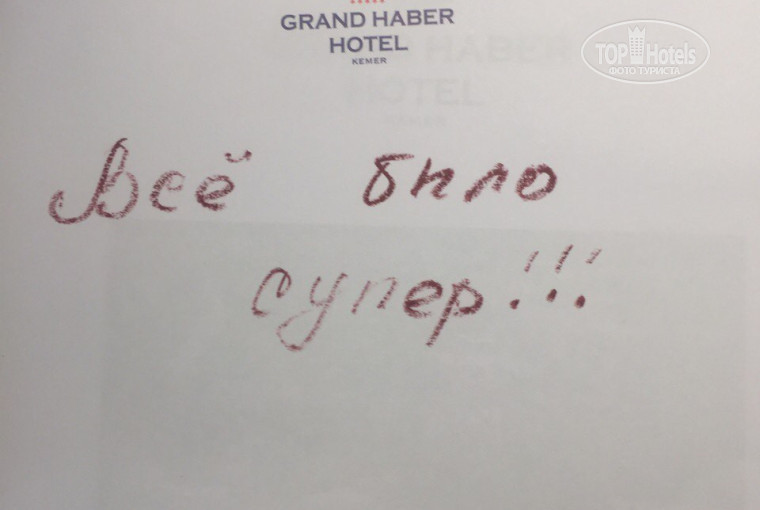 GRAND HABER
HOTEL
KEMER
TOP Hotels
ФОТО ТУРИСТА
Всё било
супер!!!